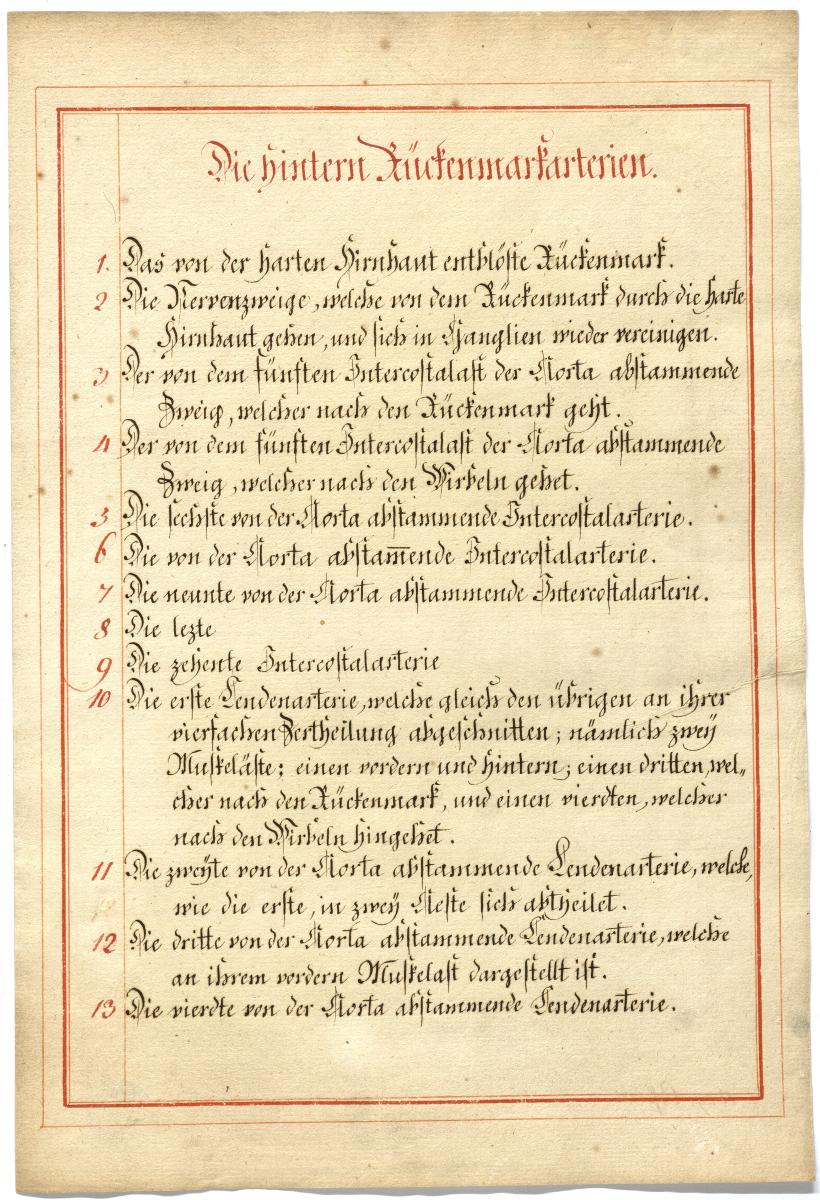 Die hintern Rückenmarkarterien.
1. Das von der harten Hirnhaut entblöste Rückenmark.
2 Die Nervenzweige, welche von dem Rückenmark durch die harte
Hirnhaut gehen, und sich in Ganglien wieder vereinigen.
3 Der von dem fünften Intercostalast der Aorta abstammende
Zweig, welcher nach den Rückenmark geht.
4 Der von dem fünften Intercostalast der Aorta abstammende
Zweig, welcher nach den Wirbeln gehet.
5 Die sechste von der Aorta abstammende Intercostalarterie.
6 Die von der Aorta abstam̅ende Intercostalarterie.
7 Die neunte von der Aorta abstammende Intercostalarterie.
8 Die lezte
9 Die zehente Intercostalarterie
10 Die erste Lendenarterie, welche gleich den übrigen an ihrer
vierfachen Zertheilung abgeschnitten; nämlich zwey
Muskeläste: einen vordern und hintern; einen dritten, wel„
cher nach den Rückenmark, und einen vierdten, welcher
nach den Wirbeln hingehet.
11 Die zweÿte von der Aorta abstammende Lendenarterie, welche,
wie die erste, in zwey Aeste sich abtheilet.
12 Die dritte von der Aorta abstammende Lendenarterie, welche
an ihrem vordern Muskelast dargestellt ist.
13 Die vierdte von der Aorta abstammende Lendenarterie.